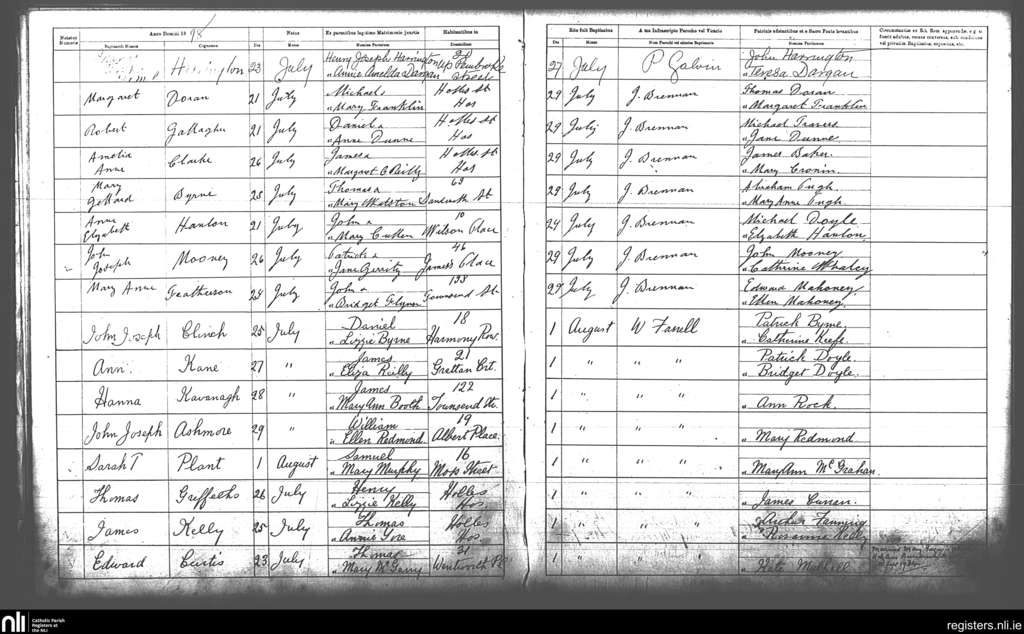 Anno Domini 18 98
Numerus
Baptismate Nomen Cognomen Die Natus Mense Ex parentibus legitimo Matrimonio junctis Nomina Parentum Habitantibus in
Harrington 23 July Henry Joseph Harrington
" Annie Amelia Dargan Street
Margaret Doran 21 July Michael & Holles St
" Mary Franklin Hos
Robert Gallagher 21 July Daniel & Holles St
" Anne Dunne Hos
Amelia Anne Clarke 26 July James & Holles St
" Margaret O Reilly Hos
Mary Byrne 25 July Thomas & 63
" Mary St
Anne Elizabeth Hanlon 21 July John & 10
" Mary Cullen Wilson Place
John Joseph Mooney 26 July Patrick & 46
" Jane James's Place
Mary Anne 24 July John &
" Bridget Townsend St
John Joseph Clinch 25 July Daniel 18
" Lizzie Byrne Harmony Row.
Ann. Kane 27 " James 21
" Eliza Reilly Grattan Crt.
Hanna Kavanagh 28 " James 122
" Mary Ann Booth Townsend St.
John Joseph Ashmore 29 " William 19
" Ellen Redmond. Albert Place.
Sarah T Plant 1 August Samuel 16
" Mary Murphy Moss Street
Thomas 26 July Henry Holles
" Lizzie Kelly Hos.
James Kelly 25 July Thomas Holles
" Annie Hos.
Edward Curtis 23 July Thomas 31
" Mary Mc Garry Wentworth Pl
Die fuit Baptizatus Mense A me Infrascripto Parocho vel Vicario Nomen Parochi vel alterius Baptizantis Patrinis adstantibus et e Sacro Fonte levantibus
27 July P Galvin John Harrington
" Teresa Dargan
29 July J. Brennan Thomas Doran
" Margaret Franklin
29 July J. Brennan Michael Travers
" Jane Dunne
29 July J. Brennan James Baker
" Mary Cronin.
29 July J. Brennan Abraham Pugh
" Mary Anne Pugh
29 July J. Brennan Michael Doyle
" Elizabeth Hanlon
29 July J. Brennan John Mooney
" Cathrine Whaley
29 July J. Brennan Edward Mahoney
" Ellen Mahoney.
1 August W Farrell Patrick Byrne
" Catherine Keefe
1 " " " Patrick Doyle.
" Bridget Doyle.
1 " " "
" Ann Rock.
1 " " "
" Mary Redmond
1 " " "
" MaryAnn Mc Grahan.
1 " " "
" James Curran.
1 " " " Arthur Fanning
" Rosanna Kelly
1 " " "
" Kate
nli Catholic Parish
Registers at
the NLI
registers.nli.ie